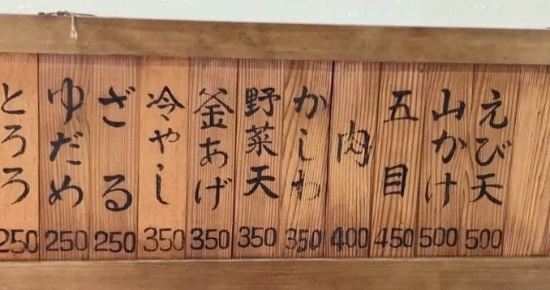 えび天 500
山かけ 500
五目 450
肉 400
かしわ 350
野菜天 350
釜あげ 350
冷やし 350
ざる 250
ゆだめ 250
とろろ 250